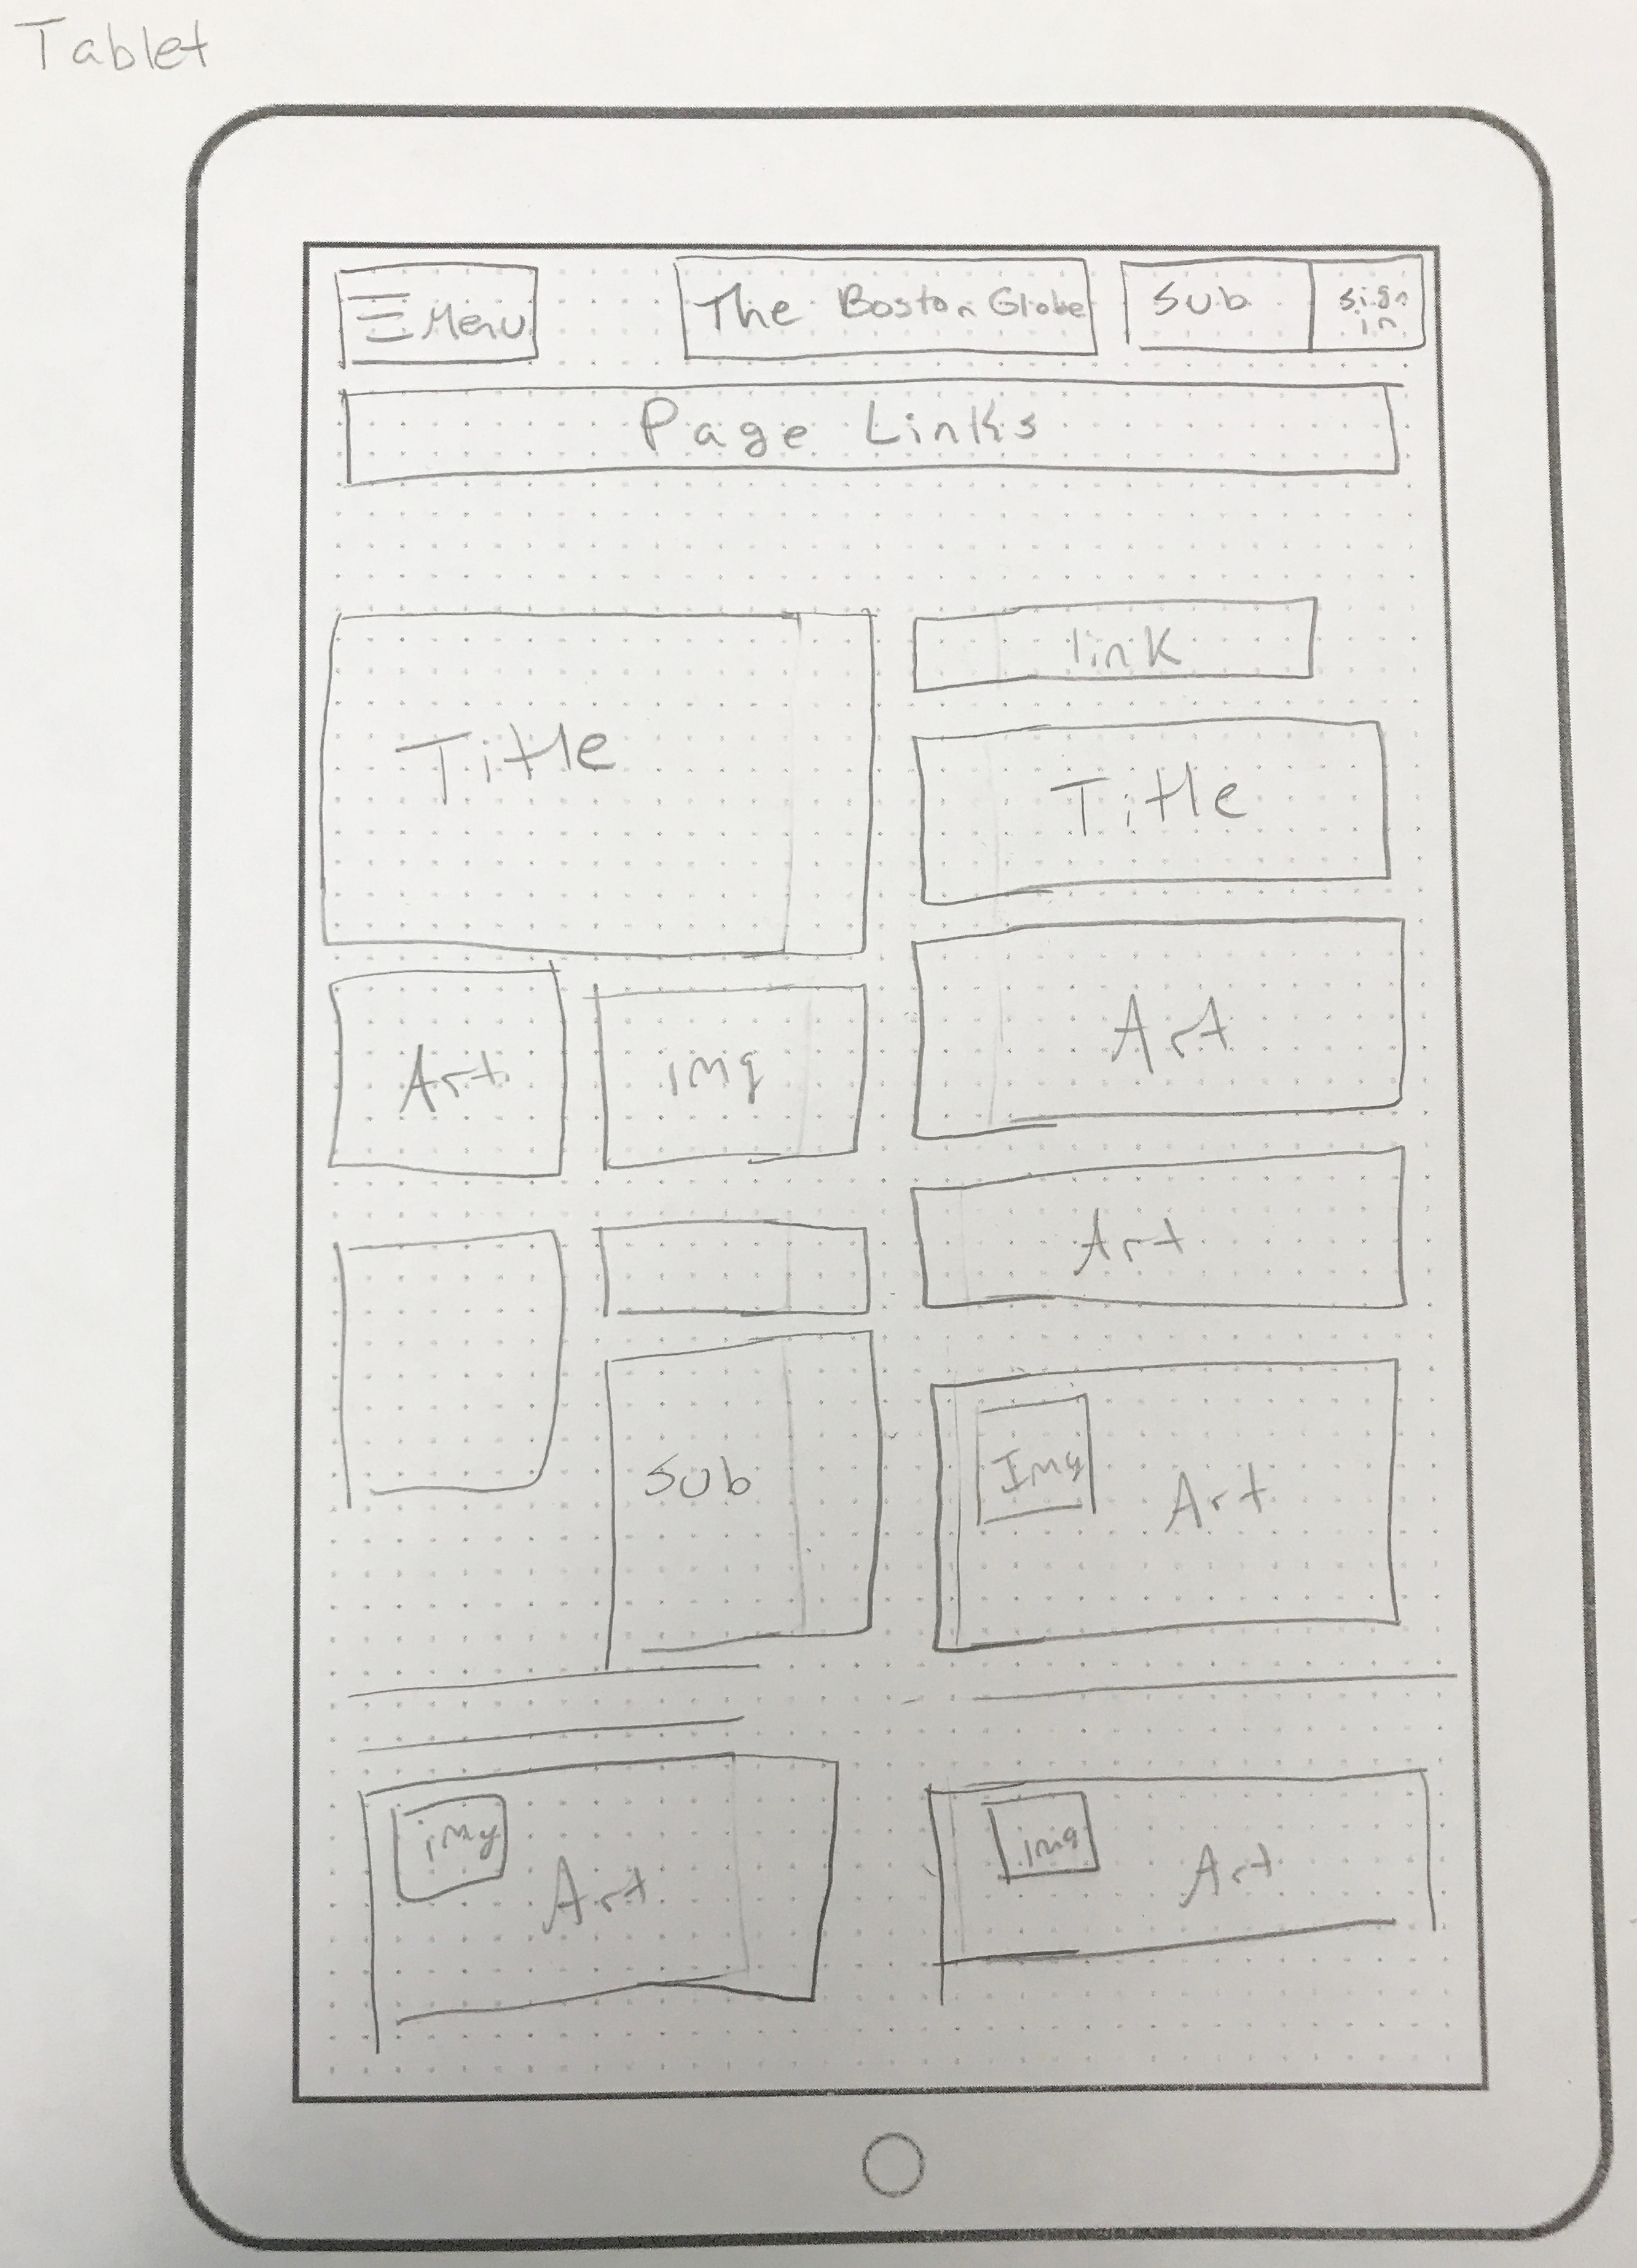 Tablet
Menu
The Boston Globe
Sub
sign
in
Page Links
Title
link
Title
Art
img
Art
Art
Sub
Img
Art
img
Art
img
Art